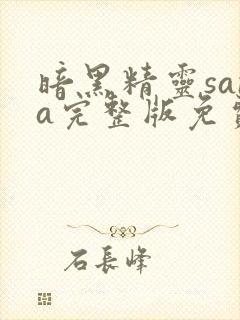 暗黑精靈sa
a完整版免
石長峰